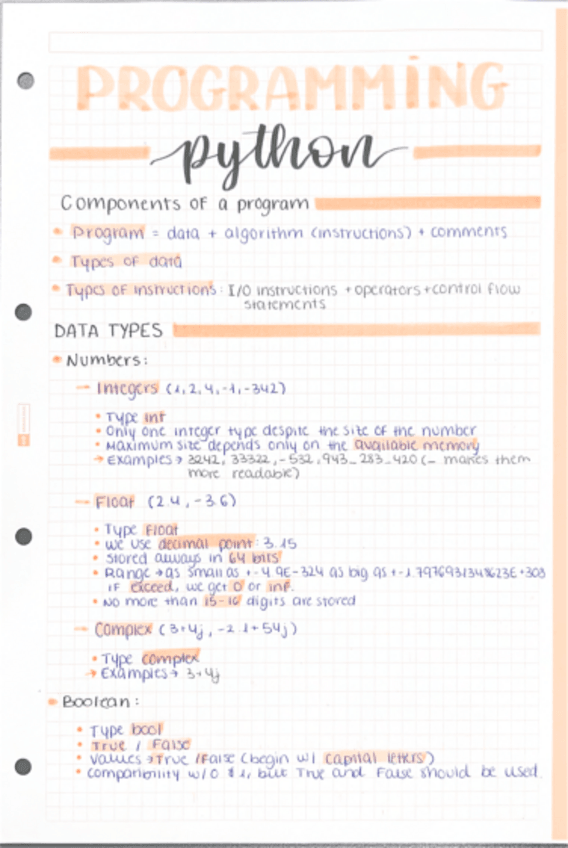 PROGRAMMING
python
Components of a program
Program = data + algorithm (instructions) + comments
Types of data
Types of instructions: I/O instructions + operators + control flow
statements
DATA TYPES
Numbers:
→ Integers (1, 2, 4, -1, -342)
Type int
Only one integer type despite the size of the number
Maximum size depends only on the available memory
→ Examples → 3242, 33322, -532, 943_283_420 (_ makes them
more readable)
→ Float (2.4, -3.6)
Type Float
we use decimal point: 3.15
Stored always in 64 bits
Range → as small as +-4.9E-324 as big as +-1.7976931348623E+308
if exceed, we get 0 or inf.
No more than 15-16 digits are stored
→ Complex (3+4j, -2.1+54j)
Type complex
→ Examples → 3+4j
Boolean:
Type bool
True / False
values → True / False (begin w/ capital letters)
w/ 0 & 1, but True and False should be used.